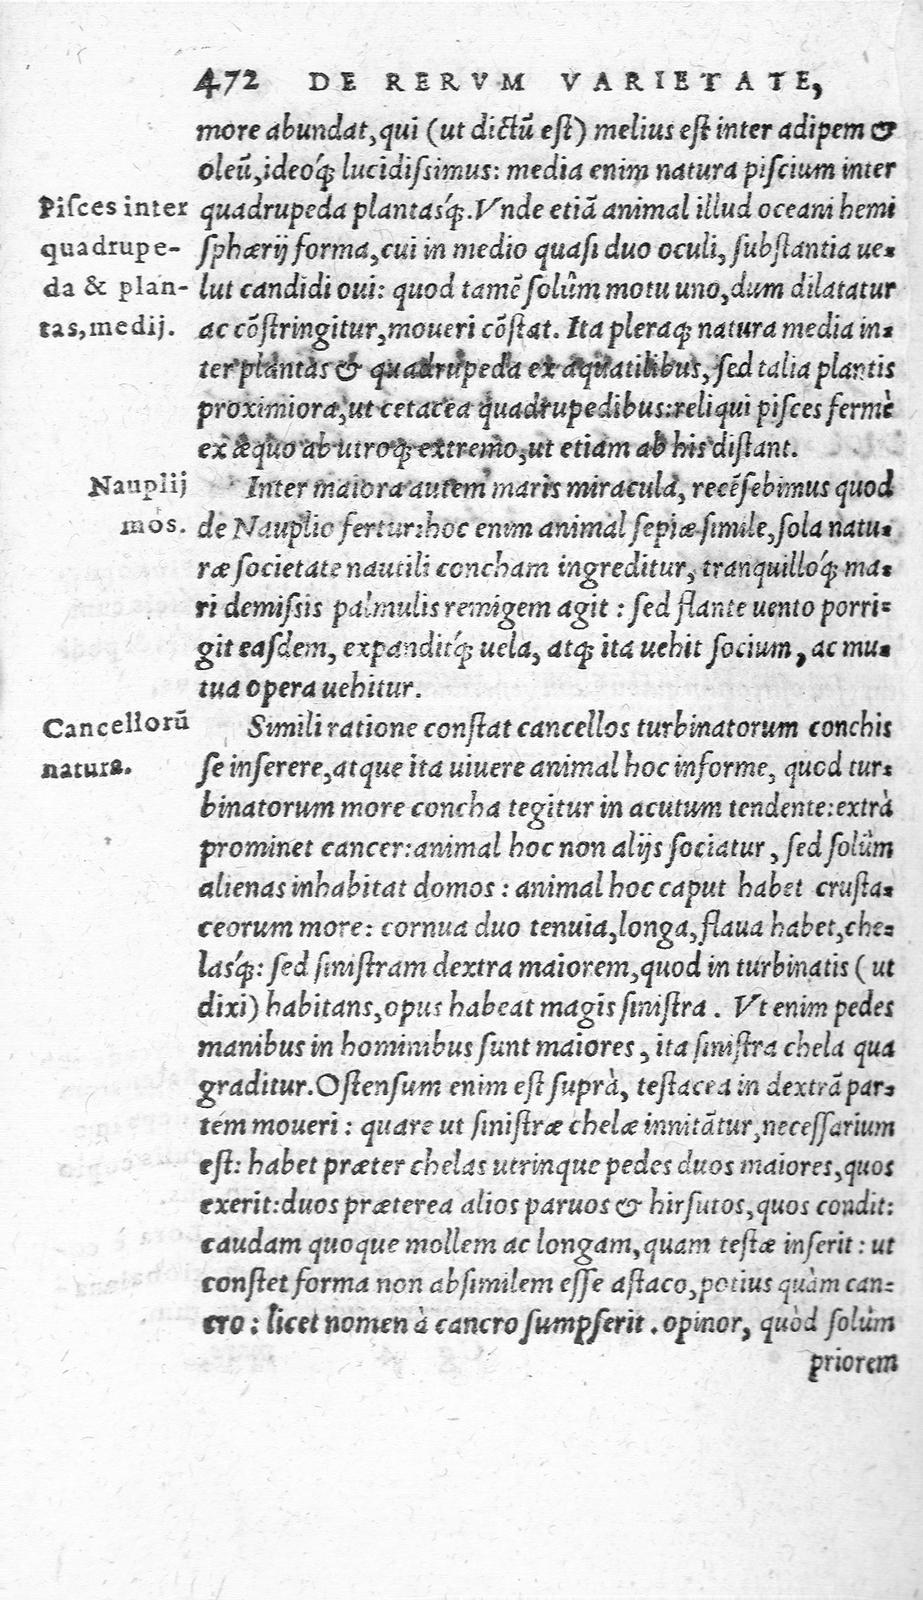 472 DE RERVM VARIETATE,
more abundat, qui (ut dictũ est) melius est inter adipem &
oleũ, ideoq́; lucidiſsimus: media enim natura piſcium inter
Piſces inter
quadrupe-
da & plan-
tas, medij.
quadrupeda plantasq́;. Vnde etiã animal illud oceani hemi
ſphærij forma, cui in medio quaſi duo oculi, ſubſtantia ue-
lut candidi oui: quod tamẽ ſolùm motu uno, dum dilatatur
ac cõſtringitur, moueri cõſtat. Ita pleraq; natura media in-
ter plantas & quadrupeda ex aquatilibus, ſed talia plantis
proximiora, ut cetacea quadrupedibus: reliqui piſces fermè
ex æquo ab utroq; extremo, ut etiam ab his diſtant.
Nauplij
mos.
Inter maiora autem maris miracula, recẽſebimus quod
de Nauplio fertur: hoc enim animal ſepiæ ſimile, ſola natu-
ræ ſocietate nautili concham ingreditur, tranquilloq́; ma-
ri demiſsis palmulis remigem agit: ſed flante uento porri-
git eaſdem, expanditq́; uela, atq; ita uehit ſocium, ac mu-
tua opera uehitur.
Cancellorũ
natura.
Simili ratione conſtat cancellos turbinatorum conchis
ſe inſerere, atque ita uiuere animal hoc informe, quod tur-
binatorum more concha tegitur in acutum tendente: extrà
prominet cancer: animal hoc non alijs ſociatur, ſed ſolùm
alienas inhabitat domos: animal hoc caput habet cruſta-
ceorum more: cornua duo tenuia, longa, flaua habet, che-
lasq́;: ſed ſiniſtram dextra maiorem, quod in turbinatis (ut
dixi) habitans, opus habeat magis ſiniſtra. Vt enim pedes
manibus in hominibus ſunt maiores, ita ſiniſtra chela qua
graditur. Oſtenſum enim eſt ſuprà, teſtacea in dextrã par-
tem moueri: quare ut ſiniſtræ chelæ innitãtur, neceſſarium
eſt: habet præter chelas utrinque pedes duos maiores, quos
exerit: duos præterea alios paruos & hirſutos, quos condit:
caudam quoque mollem ac longam, quam teſtæ inſerit: ut
conſtet forma non abſimilem eſſe aſtaco, potius quàm can-
cro: licet nomen à cancro ſumpſerit. opinor, quòd ſolùm
priorem